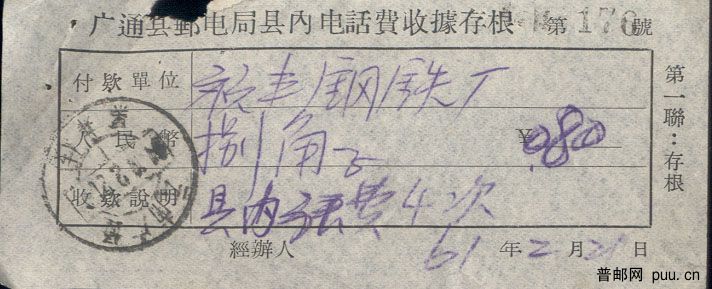 广通县郵电局县內电話費收據存根 第 176 號
付款單位 禄丰钢铁厂
人民幣 捌角正 ¥ 0.80
收款說明 县内话费4次
經辦人 61 年 2 月 21 日
第一聯：存根
普邮网 puu.cn